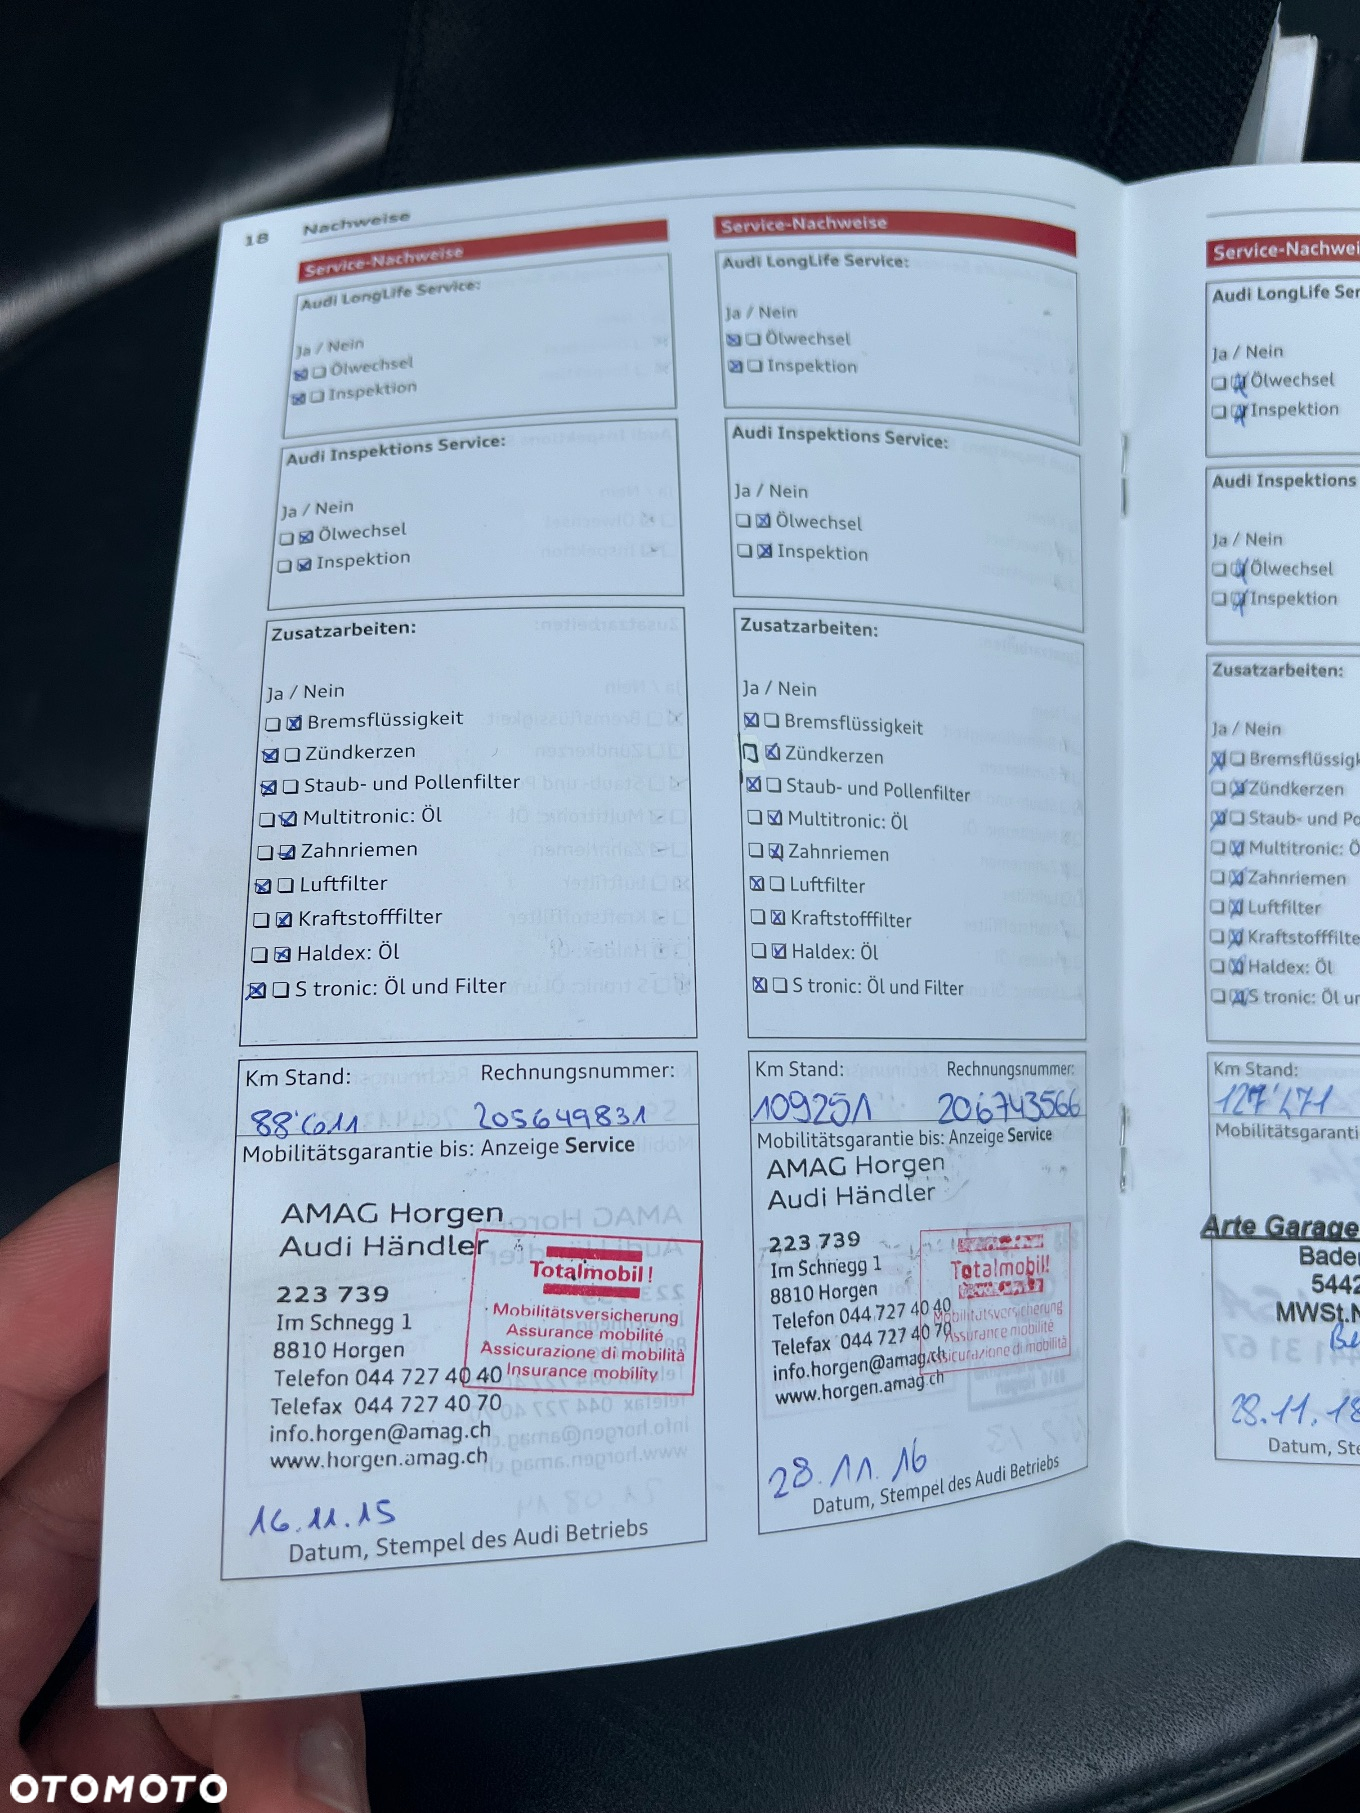 18 Nachweise
Service-Nachweise
Audi LongLife Service:
Ja / Nein
Ölwechsel
Inspektion
Audi Inspektions Service:
Ja / Nein
Ölwechsel
Inspektion
Zusatzarbeiten:
Ja / Nein
Bremsflüssigkeit
Zündkerzen
Staub- und Pollenfilter
Multitronic: Öl
Zahnriemen
Luftfilter
Kraftstofffilter
Haldex: Öl
S tronic: Öl und Filter
Km Stand: Rechnungsnummer:
88'611 205649831
Mobilitätsgarantie bis: Anzeige Service
AMAG Horgen
Audi Händler
223 739
Im Schnegg 1
8810 Horgen
Telefon 044 727 40 40
Telefax 044 727 40 70
info.horgen@amag.ch
www.horgen.amag.ch
Totalmobil!
Mobilitätsversicherung
Assurance mobilité
Assicurazione di mobilità
Insurance mobility
16.11.15
Datum, Stempel des Audi Betriebs
Service-Nachweise
Audi LongLife Service:
Ja / Nein
Ölwechsel
Inspektion
Audi Inspektions Service:
Ja / Nein
Ölwechsel
Inspektion
Zusatzarbeiten:
Ja / Nein
Bremsflüssigkeit
Zündkerzen
Staub- und Pollenfilter
Multitronic: Öl
Zahnriemen
Luftfilter
Kraftstofffilter
Haldex: Öl
S tronic: Öl und Filter
Km Stand: Rechnungsnummer:
109251 206743566
Mobilitätsgarantie bis: Anzeige Service
AMAG Horgen
Audi Händler
223 739
Im Schnegg 1
8810 Horgen
Telefon 044 727 40 40
Telefax 044 727 40 70
info.horgen@amag.ch
www.horgen.amag.ch
Totalmobil!
Mobilitätsversicherung
Assurance mobilité
Assicurazione di mobilità
28.11.16
Datum, Stempel des Audi Betriebs
Service-Nachwei
Audi LongLife Ser
Ja / Nein
Ölwechsel
Inspektion
Audi Inspektions
Ja / Nein
Ölwechsel
Inspektion
Zusatzarbeiten:
Ja / Nein
Bremsflüssigk
Zündkerzen
Staub- und Po
Multitronic: Ö
Zahnriemen
Luftfilter
Kraftstofffilte
Haldex: Öl
S tronic: Öl un
Km Stand:
Mobilitätsgaranti
Arte Garage
Bade
5442
MWSt.N
28.11.18
Datum, Ste
OTOMOTO